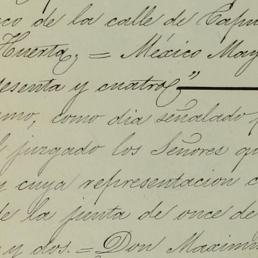 co de la calle de Capu
Huerta, = México May
esenta y cuatro,"
mo, como dia señalado p
l juzgado los Señores qu
y cuya representacion c
de la junta de once de
y dos. = Don Maximi